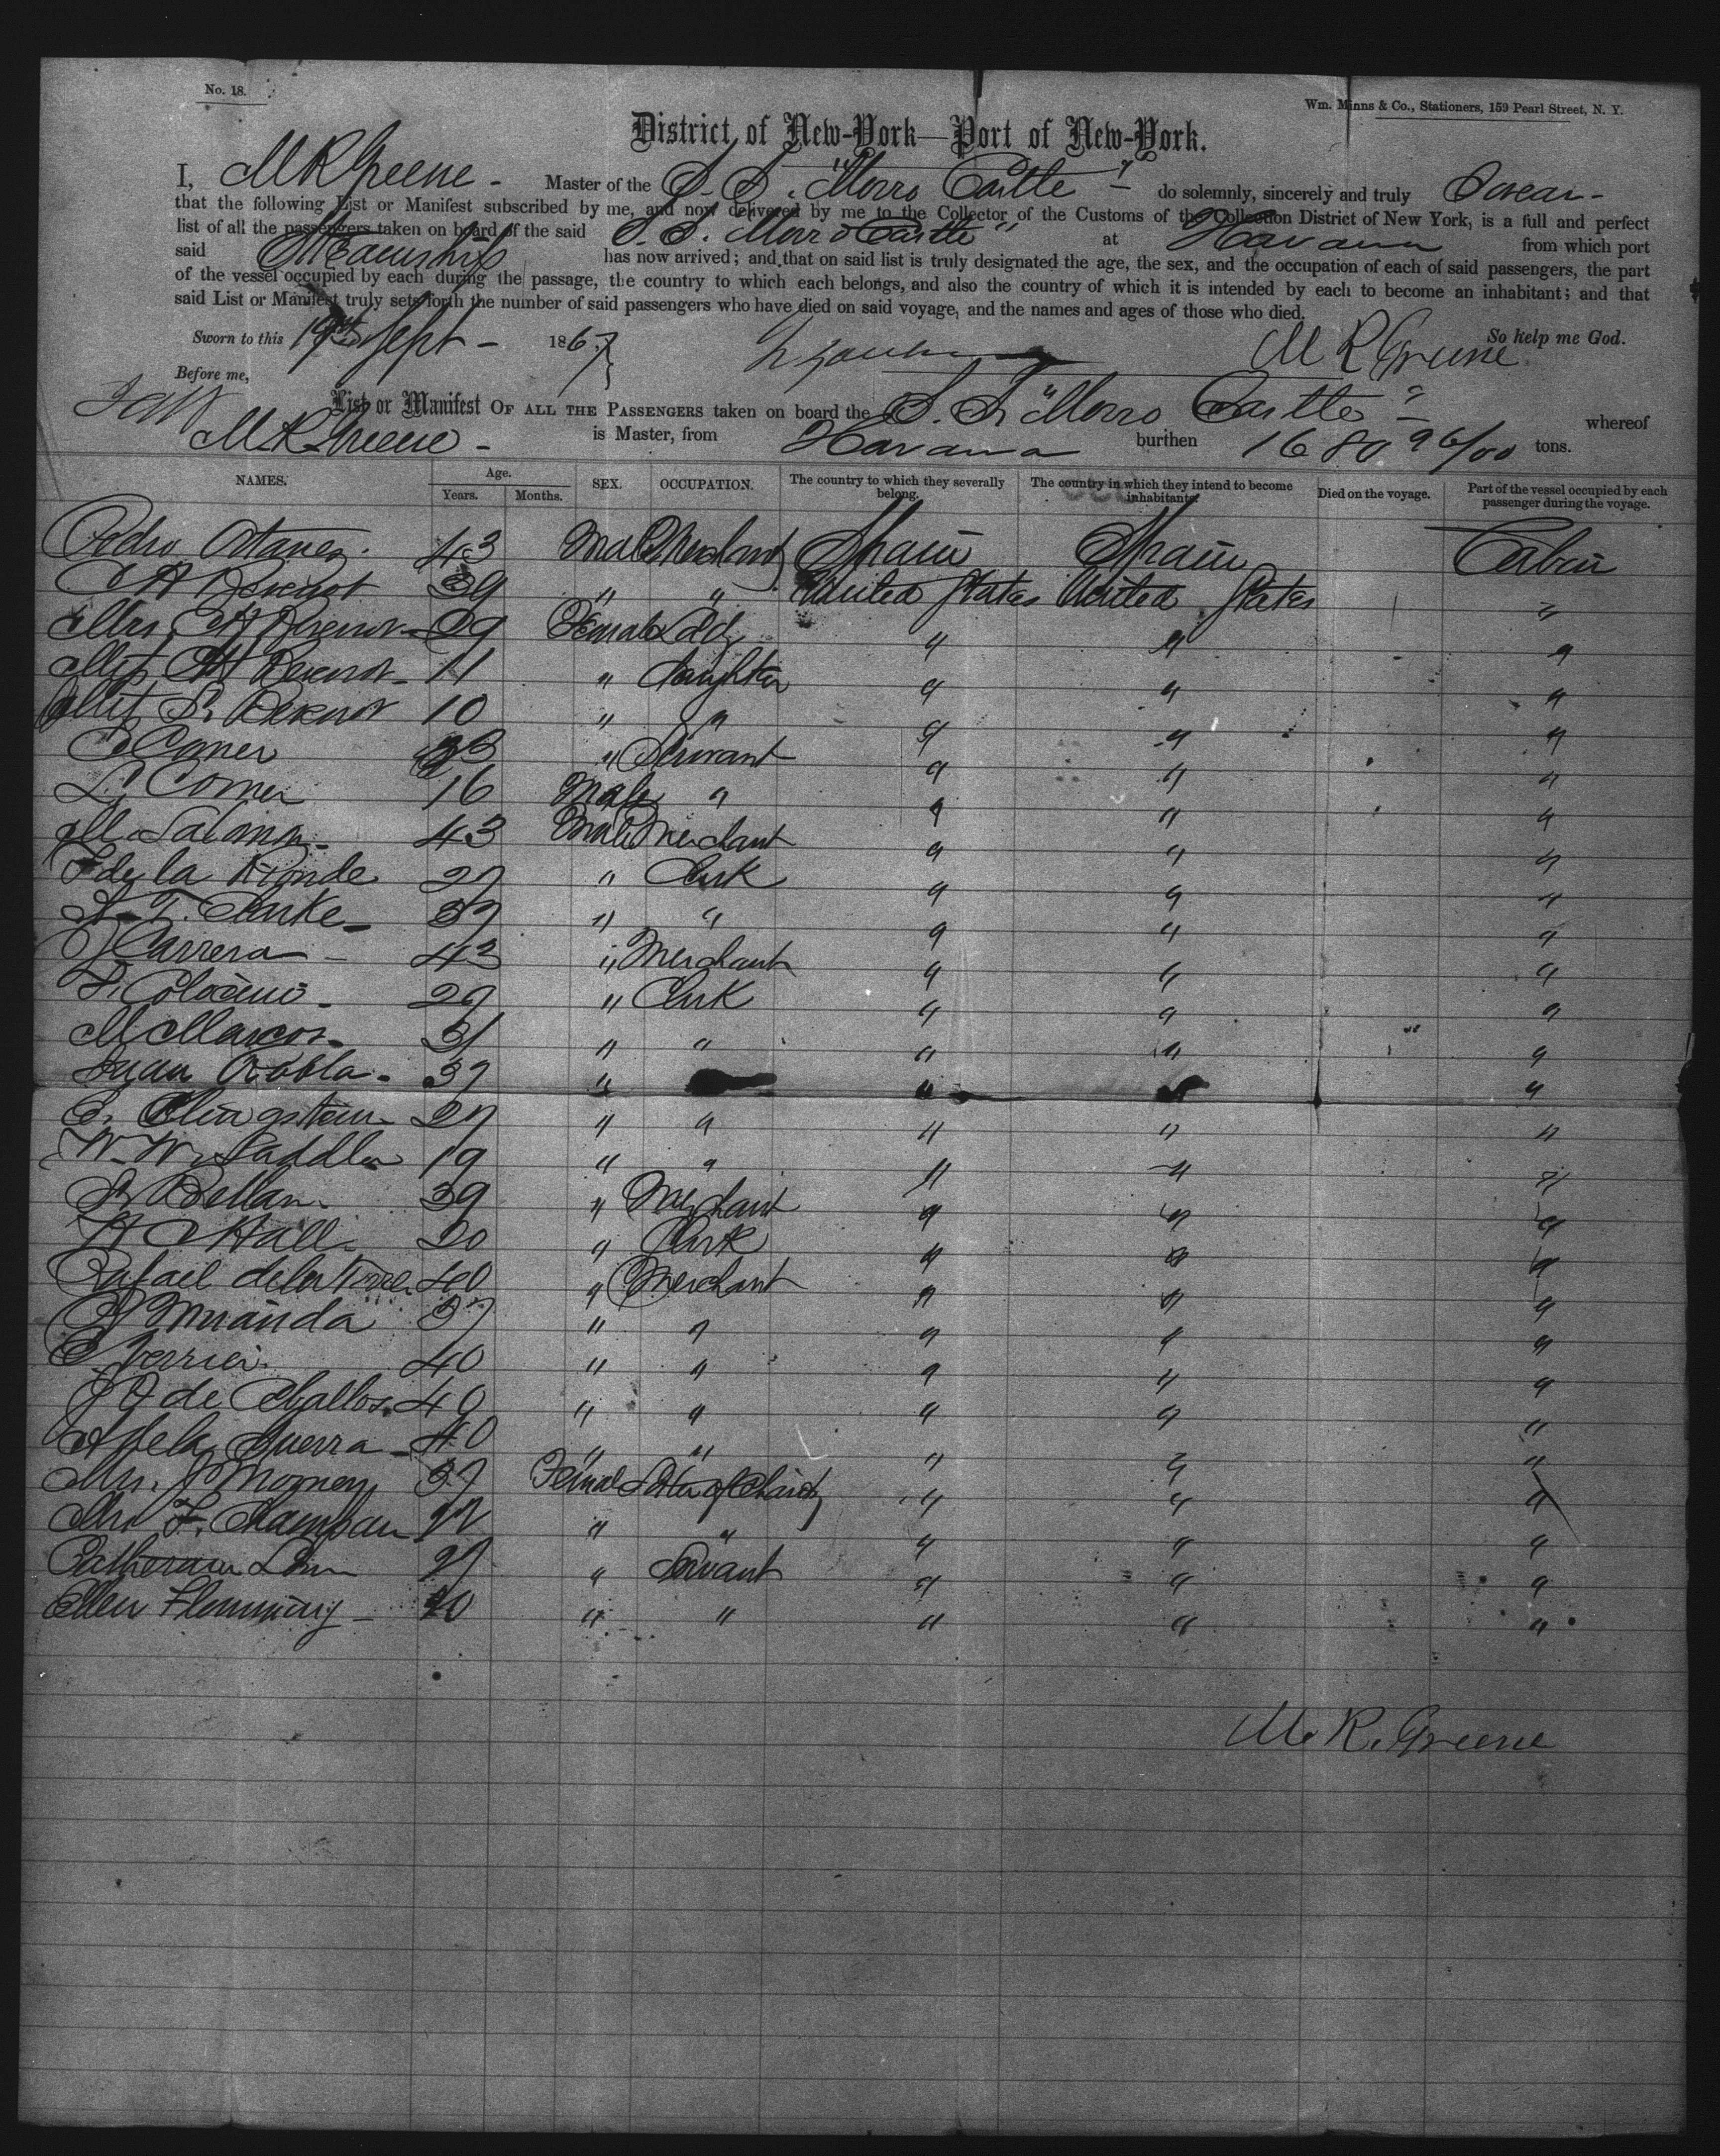 No. 18.
Wm. Minns & Co., Stationers, 159 Pearl Street, N. Y.
District of New-York—Port of New-York.
I, M R Greene - Master of the S. S. "Morro Castle" - do solemnly, sincerely and truly Swear -
that the following List or Manifest subscribed by me, and now delivered by me to the Collector of the Customs of the Collection District of New York, is a full and perfect
list of all the passengers taken on board of the said S. S. Morro Castle" at Havana from which port
said Steamship has now arrived; and that on said list is truly designated the age, the sex, and the occupation of each of said passengers, the part
of the vessel occupied by each during the passage, the country to which each belongs, and also the country of which it is intended by each to become an inhabitant; and that
said List or Manifest truly sets forth the number of said passengers who have died on said voyage, and the names and ages of those who died.
So help me God.
Sworn to this 19th Sept - 1867 M R Greene
Before me,
List or Manifest OF ALL THE PASSENGERS taken on board the S. S. "Morro Castle" - whereof
M. R. Greene - is Master, from Havana burthen 1680 96/00 tons.
NAMES. Age. Years. Months. SEX. OCCUPATION. The country to which they severally belong. The country in which they intend to become inhabitants. Died on the voyage. Part of the vessel occupied by each passenger during the voyage.
Pedro Otanes. 43 Male Merchant Spain Spain Cabin
39 " " United States United States "
Mrs 29 Female Lady " " "
11 " Daughter " " "
10 " " " " "
Comer " Servant " " "
L. Comer 16 Male " " " "
M. Salomon - 43 Male Merchant " " "
F de la Ronde 27 " Clerk " " "
T. Clarke - 37 " " " " "
Carrera - 43 " Merchant " " "
29 " Clerk " " "
M Marcos - 31 " " " " "
Juan Robla - 37 " " " "
27 " " " " "
W. W. Saddler 19 " " " " "
39 " Merchant " " "
Hall - 20 " Clerk " " "
Rafael de la Torre 40 " Merchant " " "
Miranda 37 " " " " "
40 " " " " "
de Cballos. 40 " " " " "
Guerra - 40 " " " " "
Mrs. 37 Female Sister of Charity " " "
" " " " "
Catherine 27 " Servant " " "
Ellen Flemming - 40 " " " " "
M. R. Greene